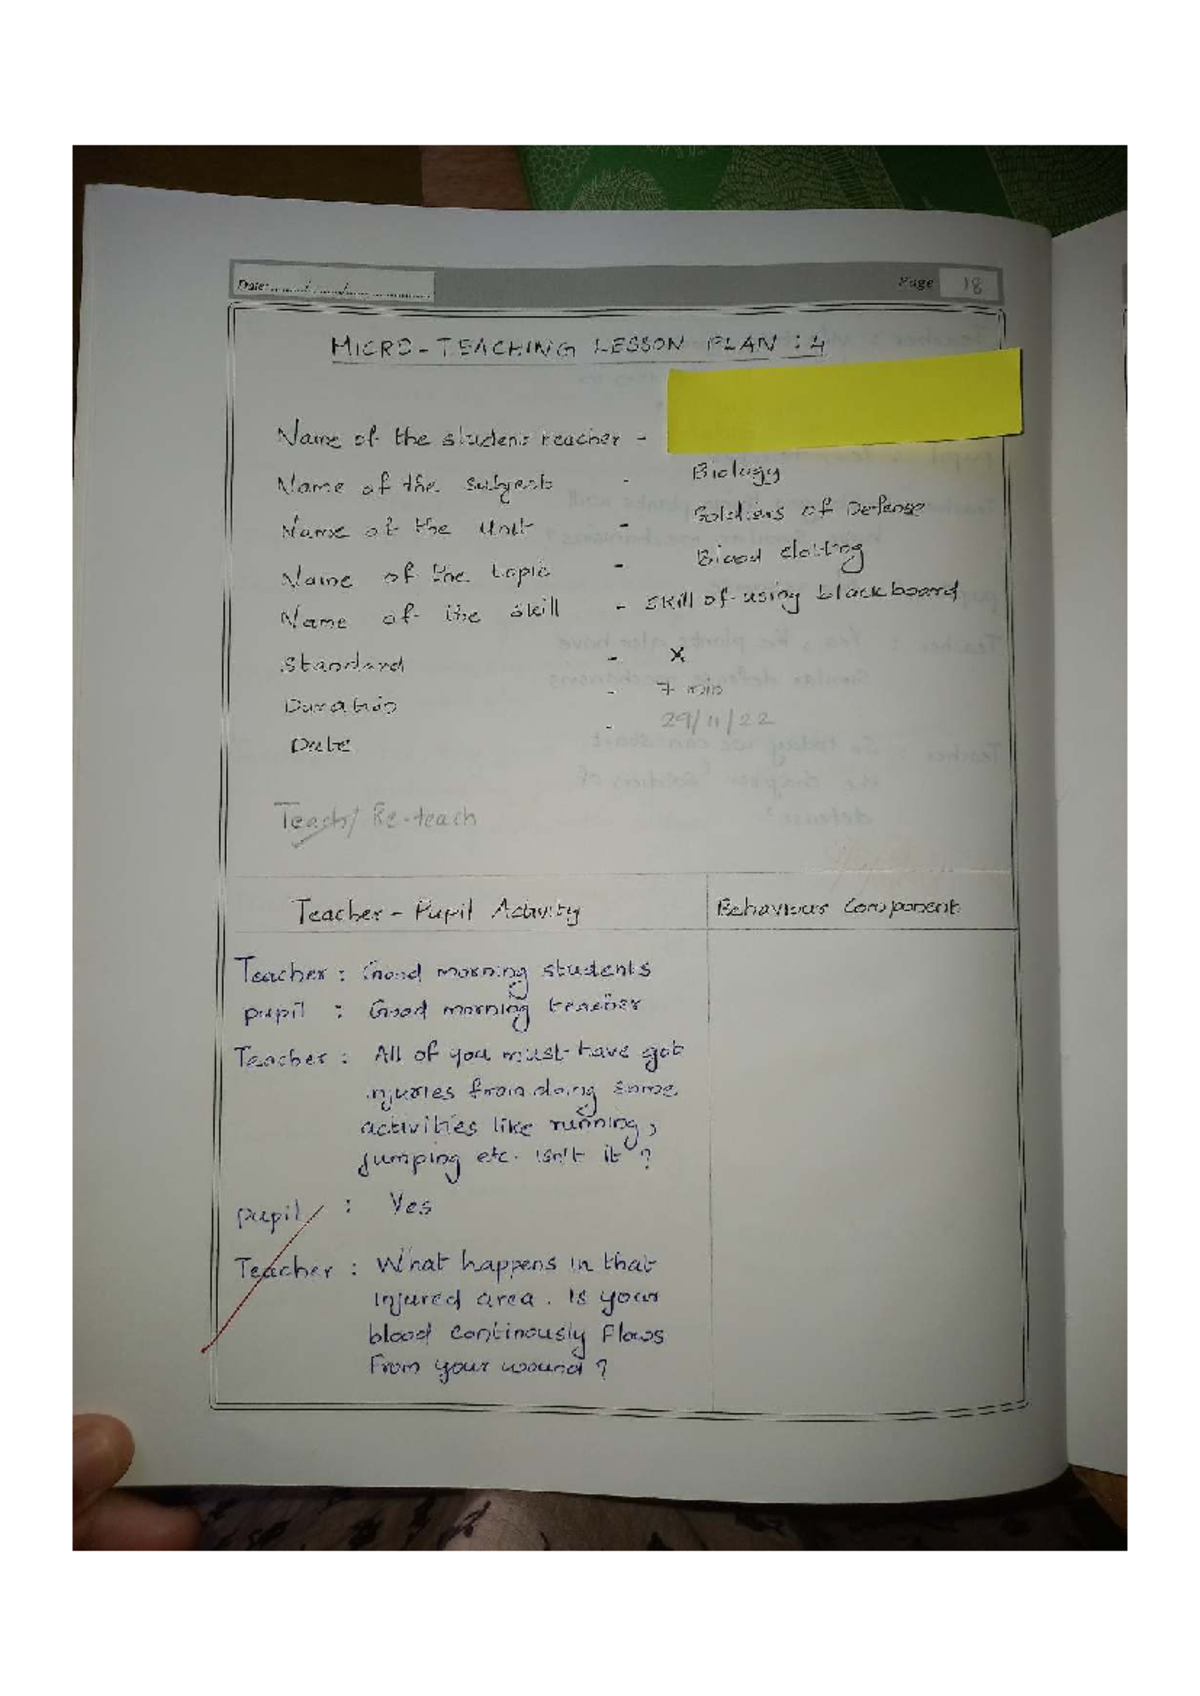 Date: ....../....../..............
Page 18
MICRO-TEACHING LESSON PLAN : 4
Name of the student teacher -
Name of the subject - Biology
Name of the Unit - Soldiers of Defense
Name of the topic - Blood clotting
Name of the skill - skill of using blackboard
Standard - X
Duration - 7 min
Date - 29/11/22
Teach/ Re-teach
Teacher - Pupil Activity
Behaviour Component
Teacher : Good morning students
pupil : Good morning teacher
Teacher : All of you must have got
injuries from doing some
activities like running,
jumping etc. isn't it ?
pupil : Yes
Teacher : What happens in that
injured area. Is your
blood continously flows
from your wound ?